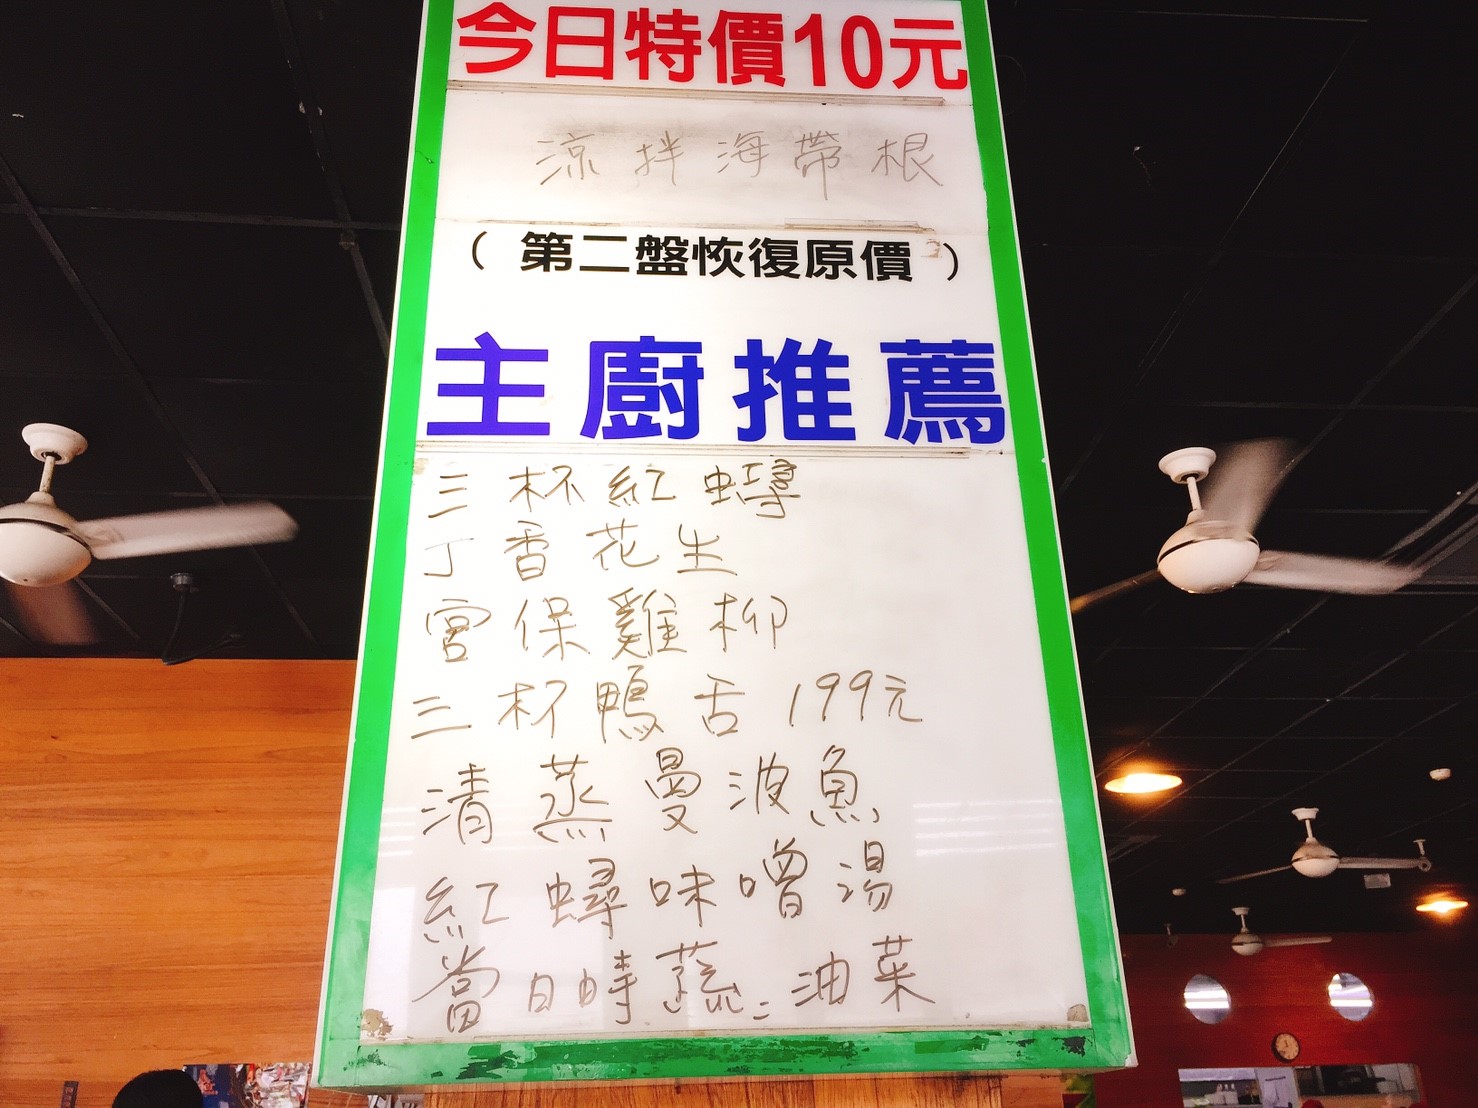 今日特價10元
涼拌海帶根
( 第二盤恢復原價 )
主廚推薦
三杯紅蟳
丁香花生
宮保雞柳
三杯鴨舌 199元
清蒸曼波魚
紅蟳味噌湯
當日時蔬:油菜